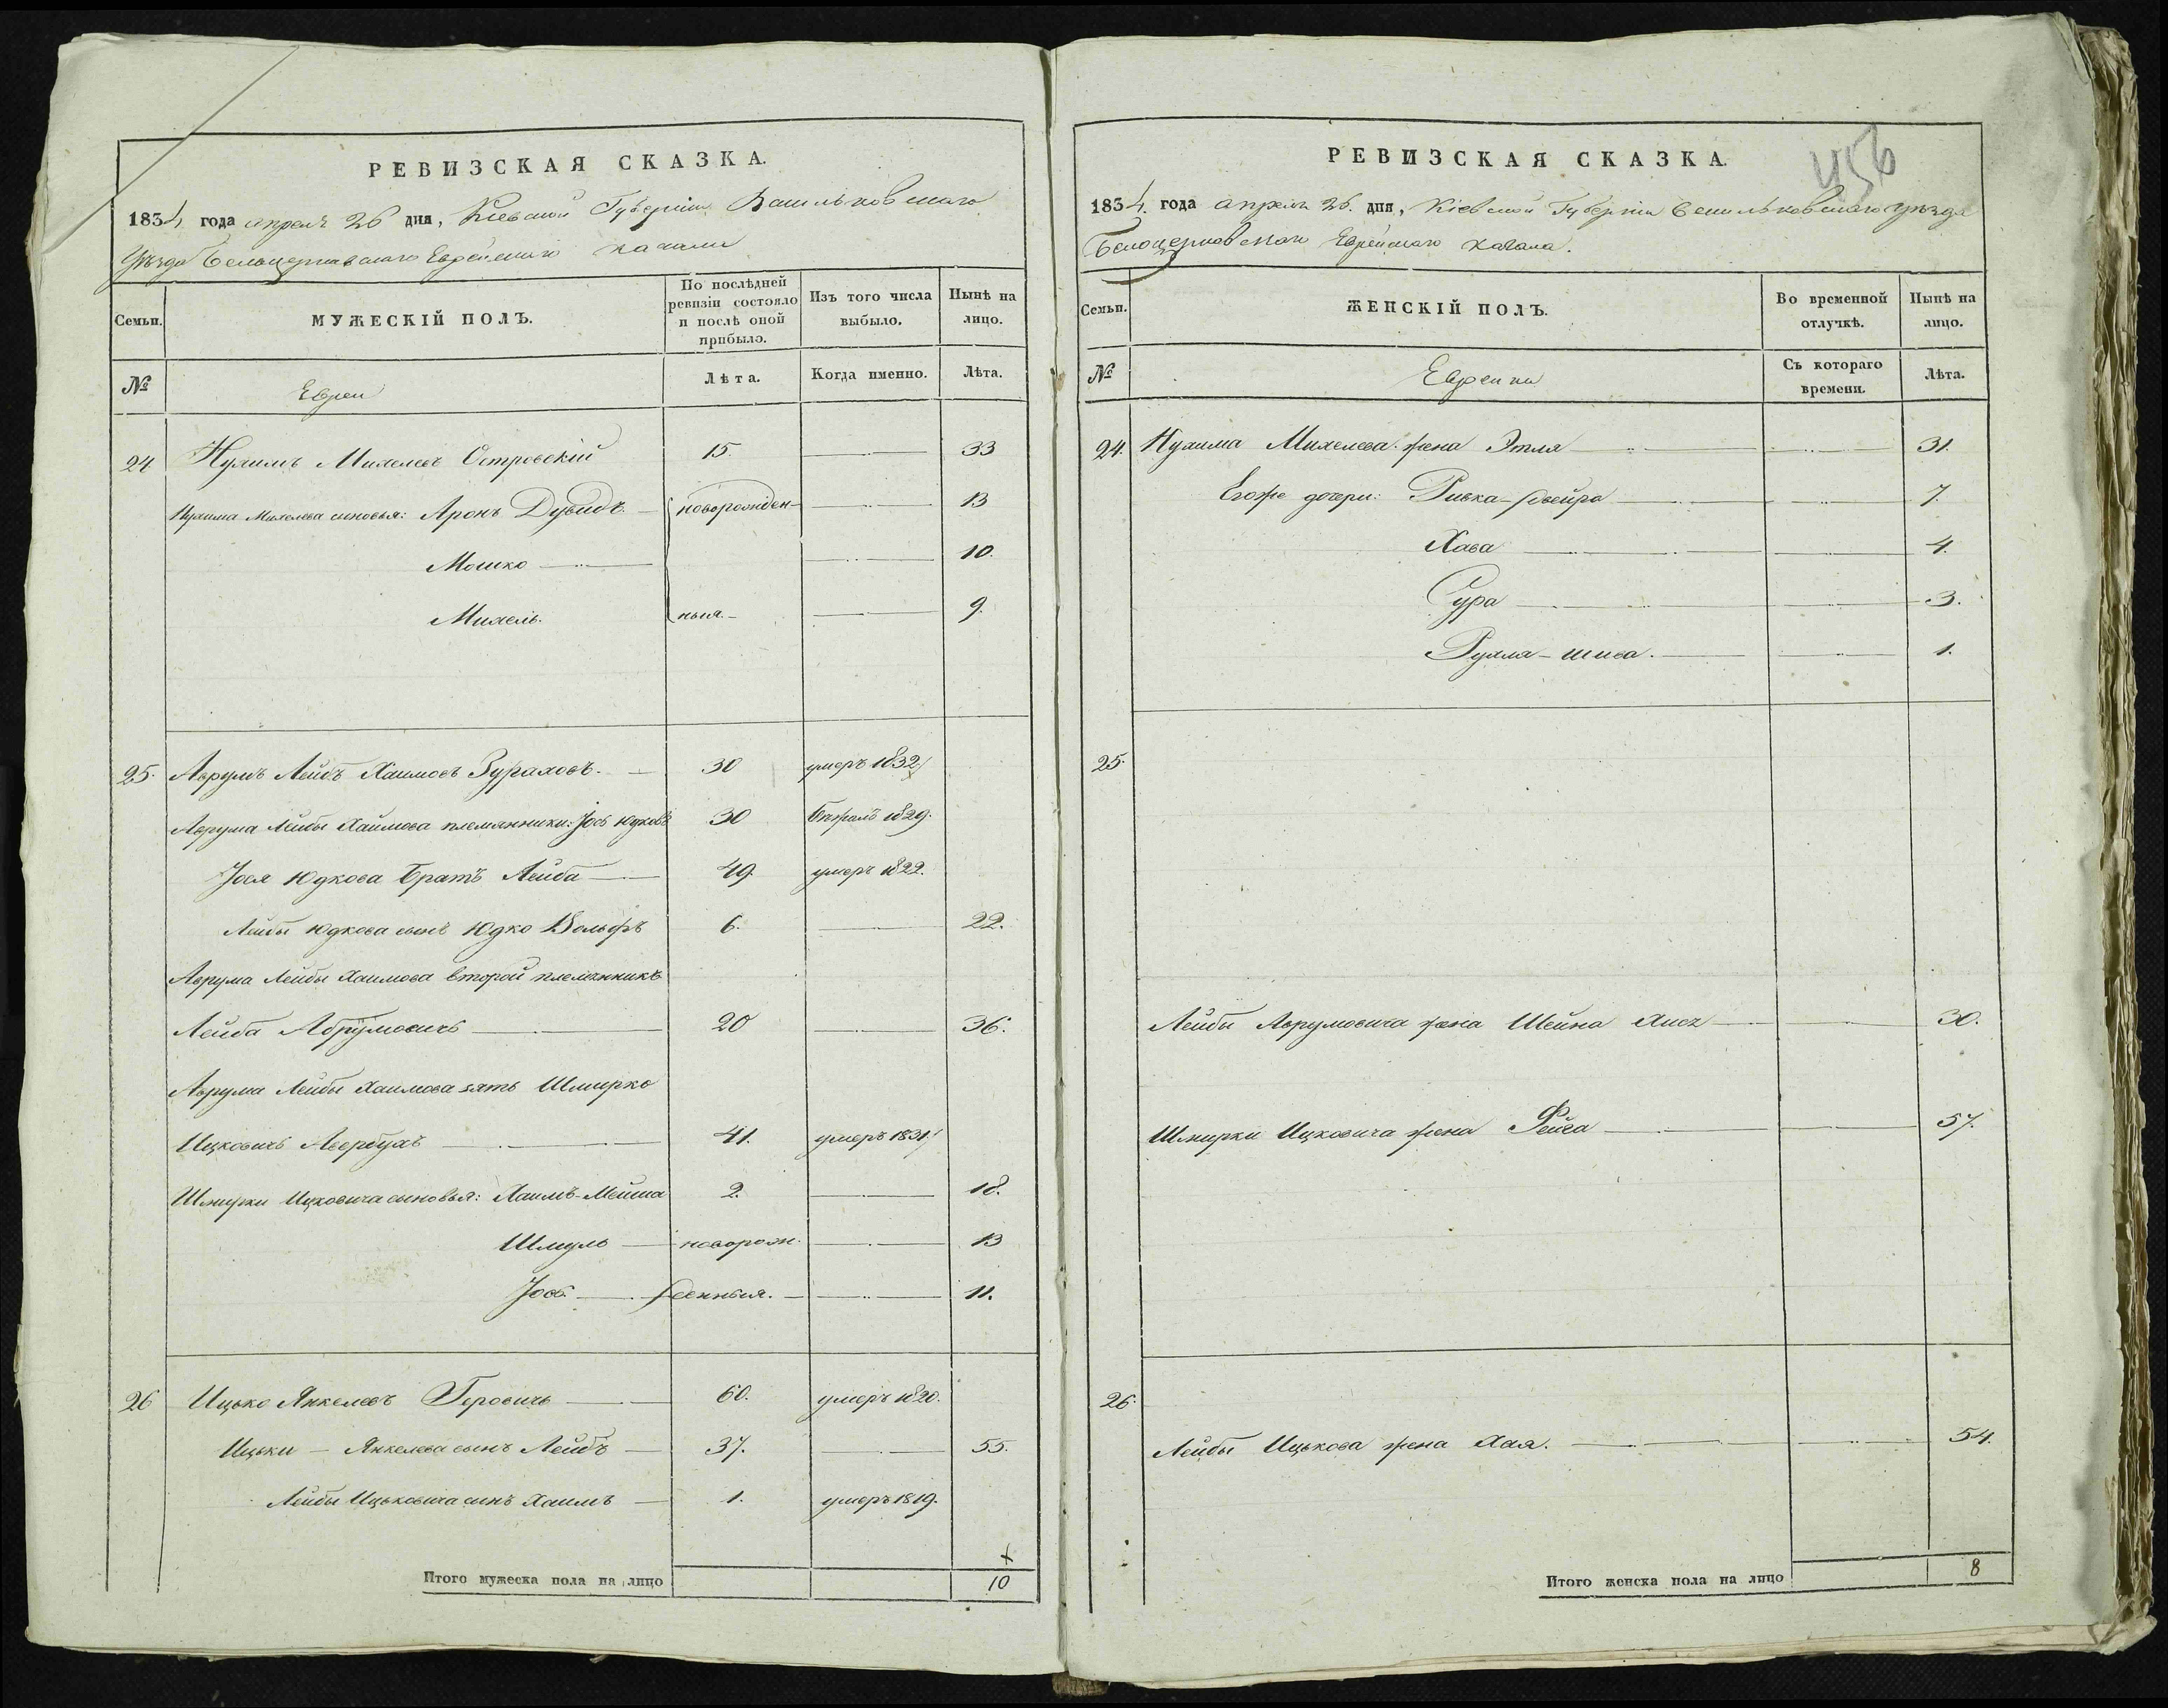 РЕВИЗСКАЯ СКАЗКА.
1834 года апреля 26 дня, Кіевской Губерніи Васильковскаго
Уѣзда Белоцерковскаго Еврейскаго кагала
Семьи.
МУЖЕСКІЙ ПОЛЪ.
По послѣдней ревизіи состояло и послѣ оной прибыло.
Изъ того числа выбыло.
Нынѣ на лицо.
№
Евреи
Лѣта.
Когда именно.
Лѣта.
24 Нухимъ Михелевъ Островскій 15. 33
Нухима Михелева сыновья: Аронъ Дувидъ. новорожден- 13
Мошко 10.
Михель. ныя. 9.
25. Аврумъ Лейбъ Хаимовъ 30 умеръ 1832
Аврума Лейбы Хаимова племянники: Іось Юдковъ 30 1829.
Іося Юдкова братъ Лейба 49. умеръ 1822.
Лейбы Юдкова сынъ Юдко Вольфъ 6. 22.
Аврума Лейбы Хаимова второй племянникъ
Лейба Абрумовичъ 20 36.
Аврума Лейбы Хаимова зять Шмирко
Ицковичъ Авербухъ 41. умеръ 1831
Шмирки Ицковича сыновья: Хаимъ-Мейша 2. 18.
Шмуль новорож- 13
Іось. денныя. 11.
26 Ицько Янкелевъ 60. умеръ 1820.
Ицьки - Янкелева сынъ Лейбъ 37. 55.
Лейбы Ицьковича сынъ Хаимъ 1. умеръ 1819.
Итого мужеска пола на лицо 10
РЕВИЗСКАЯ СКАЗКА.
456
1834. года апреля 26. дня, Кіевской Губерніи Васильковскаго уѣзда
Белоцерковскаго Еврейскаго кагала.
Семьи.
ЖЕНСКІЙ ПОЛЪ.
Во временной отлучкѣ.
Нынѣ на лицо.
№
Еврейки
Съ котораго времени.
Лѣта.
24. Нухима Михелева жена Этля 31.
Егоже дочери: Ривка-Двейра 7.
Хава 4.
Сура 3.
Рухля-шива. 1.
25.
Лейбы Аврумовича жена Шейна 30.
Шмирки Ицковича жена Фейга 57.
26.
Лейбы Ицькова жена Хая. 54.
Итого женска пола на лицо 8